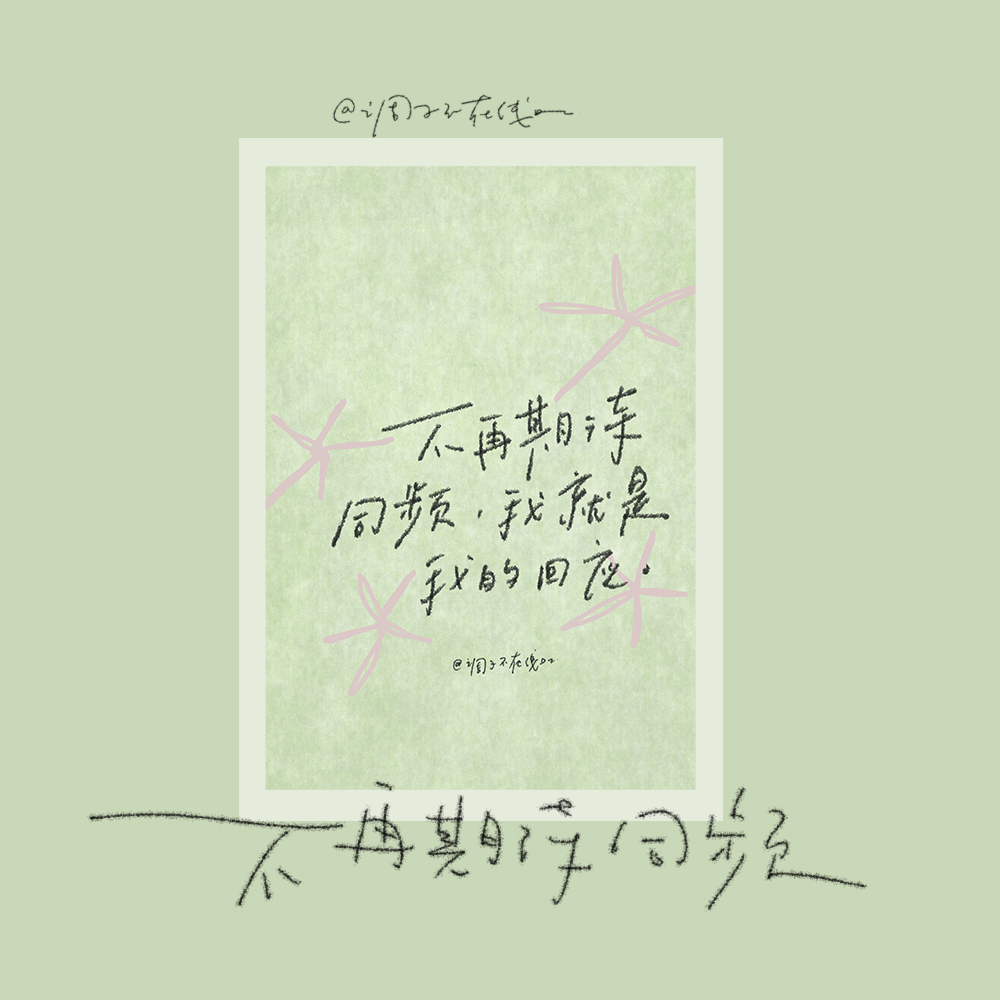 @调子不在线
不再期待
同频，我就是
我的回应。
@调子不在线
不再期待同频